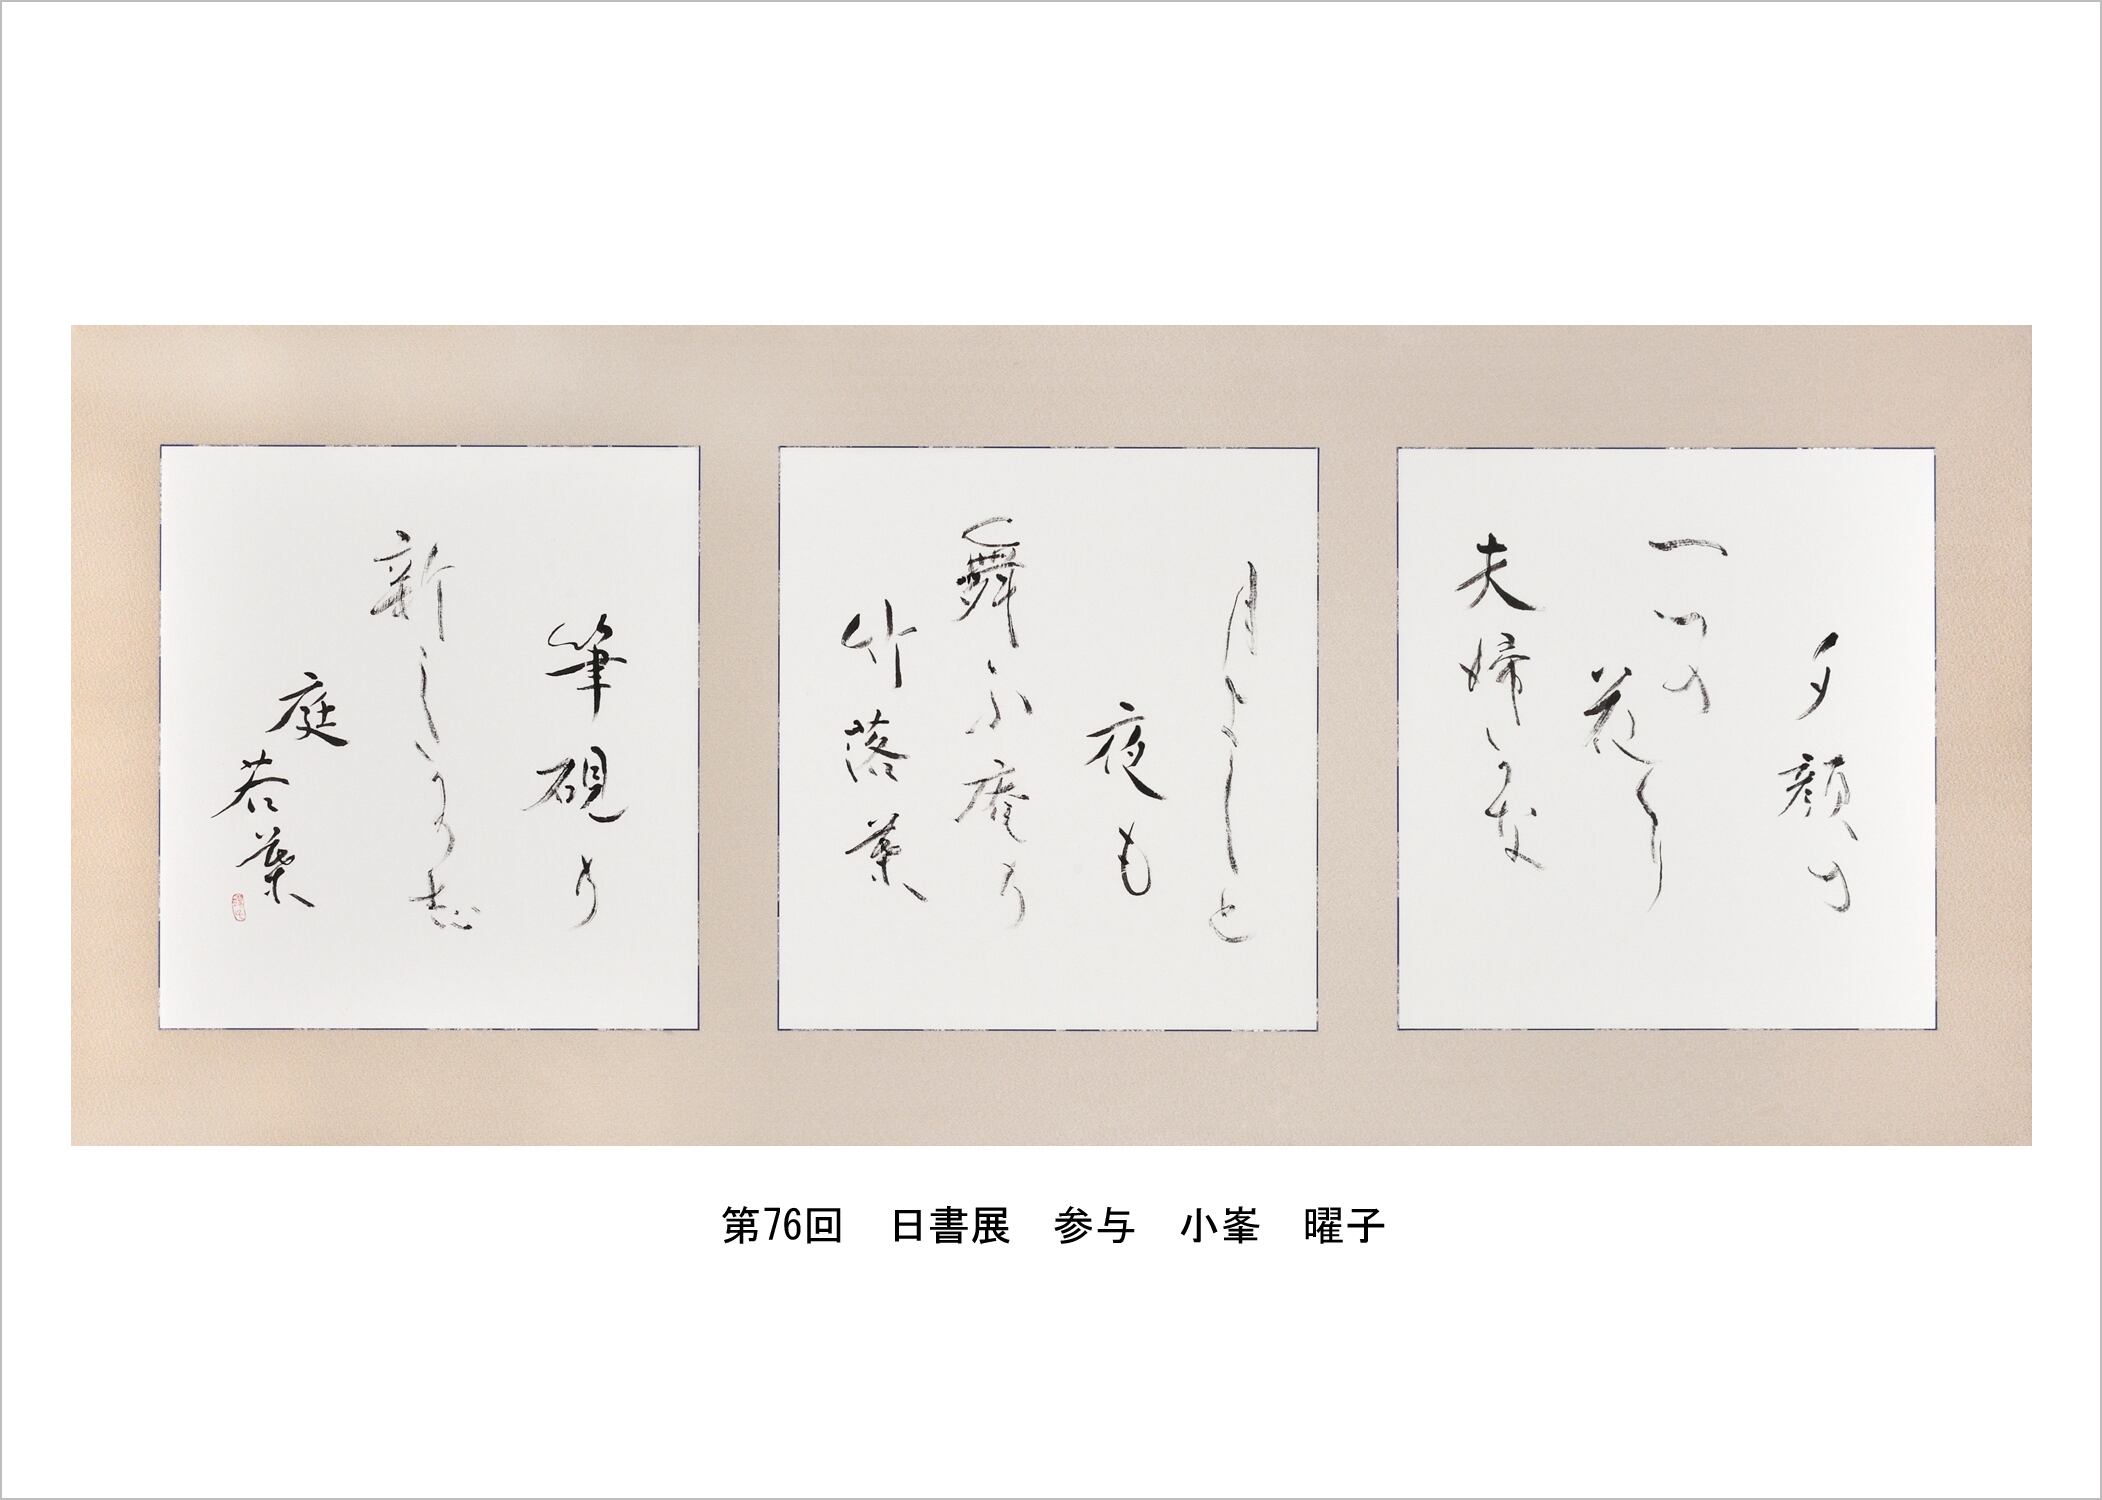 夕顔の
一つの
花に
夫婦かな
月よしと
夜も
舞ふ庵の
竹落葉
筆硯の
新しかりき
庭
若葉
第76回　日書展　参与　小峯　曜子